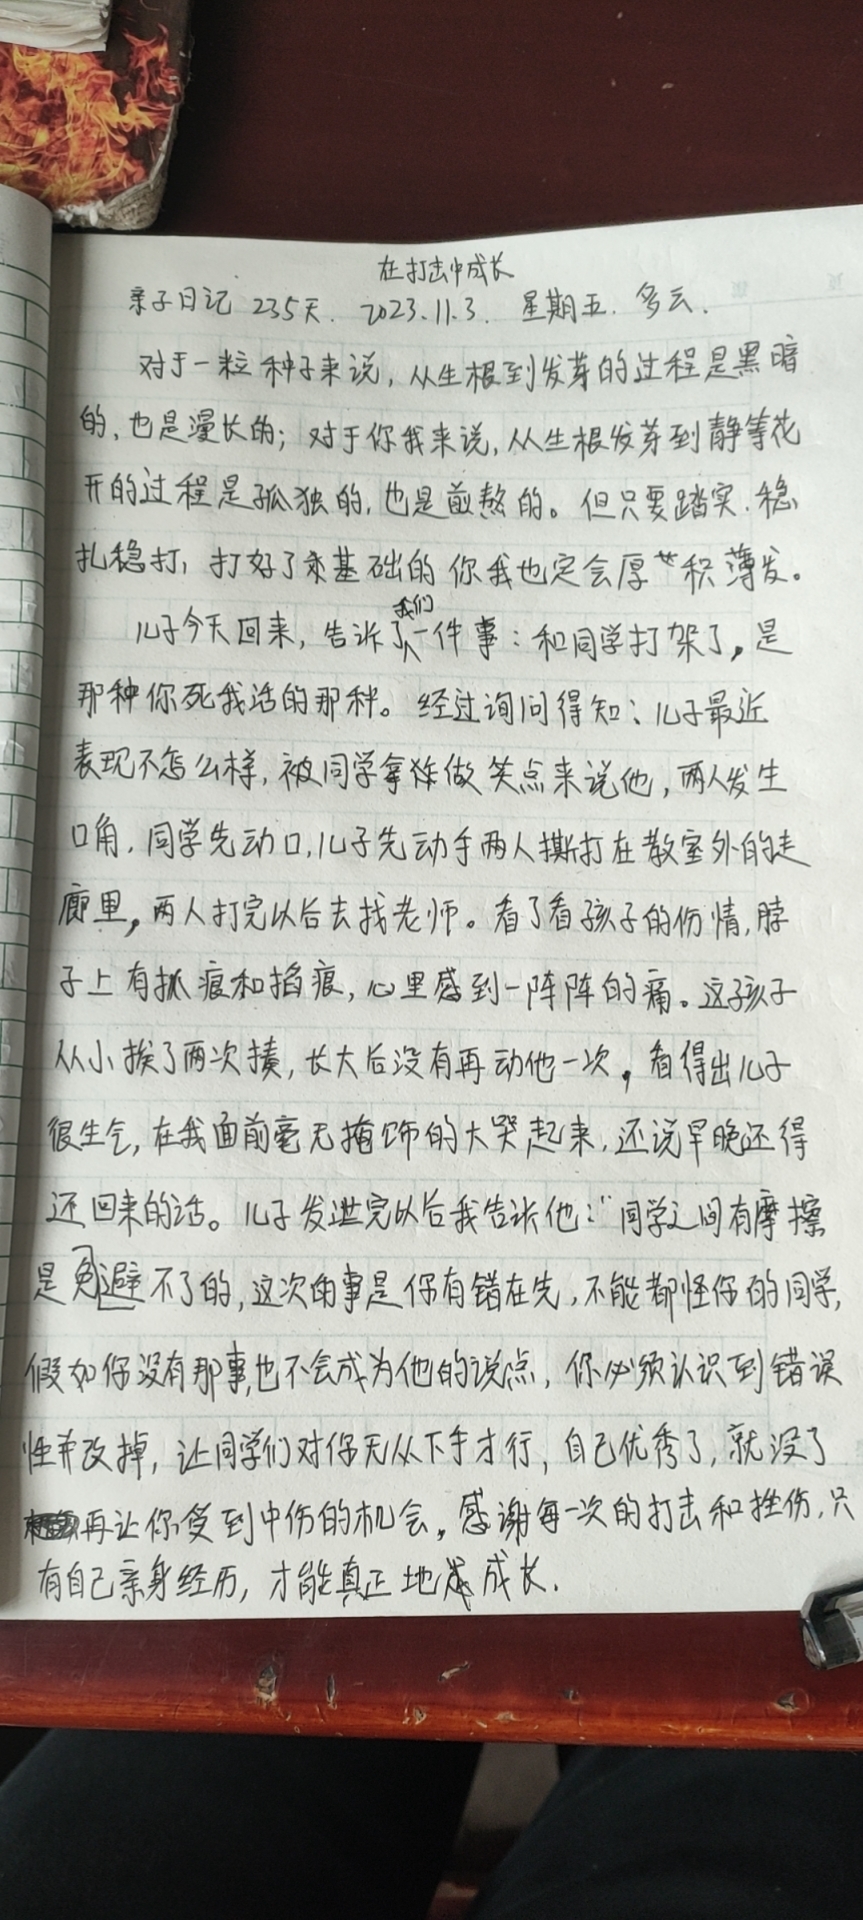 在打击中成长
亲子日记 235天. 2023.11.3. 星期五. 多云.
对于一粒种子来说，从生根到发芽的过程是黑暗
的，也是漫长的；对于你我来说，从生根发芽到静等花
开的过程是孤独的，也是煎熬的。但只要踏实.稳
扎稳打，打好了基础的你我也定会厚积薄发。
儿子今天回来，告诉了我们一件事：和同学打架了，是
那种你死我活的那种。经过询问得知：儿子最近
表现不怎么样，被同学拿做笑点来说他，两人发生
口角，同学先动口，儿子先动手两人撕打在教室外的走
廊里，两人打完以后去找老师。看了看孩子的伤情，脖
子上有抓痕和掐痕，心里感到一阵阵的痛。这孩子
从小挨了两次揍，长大后没有再动他一次，看得出儿子
很生气，在我面前毫无掩饰的大哭起来，还说早晚还得
还回来的话。儿子发泄完以后我告诉他：“同学之间有摩擦
是避免不了的，这次的事是你有错在先，不能都怪你的同学，
假如你没有那事，也不会成为他的说点，你必须认识到错误
性并改掉，让同学们对你无从下手才行，自己优秀了，就没了
再让你受到中伤的机会。感谢每一次的打击和挫伤，只
有自己亲身经历，才能真正地成长.